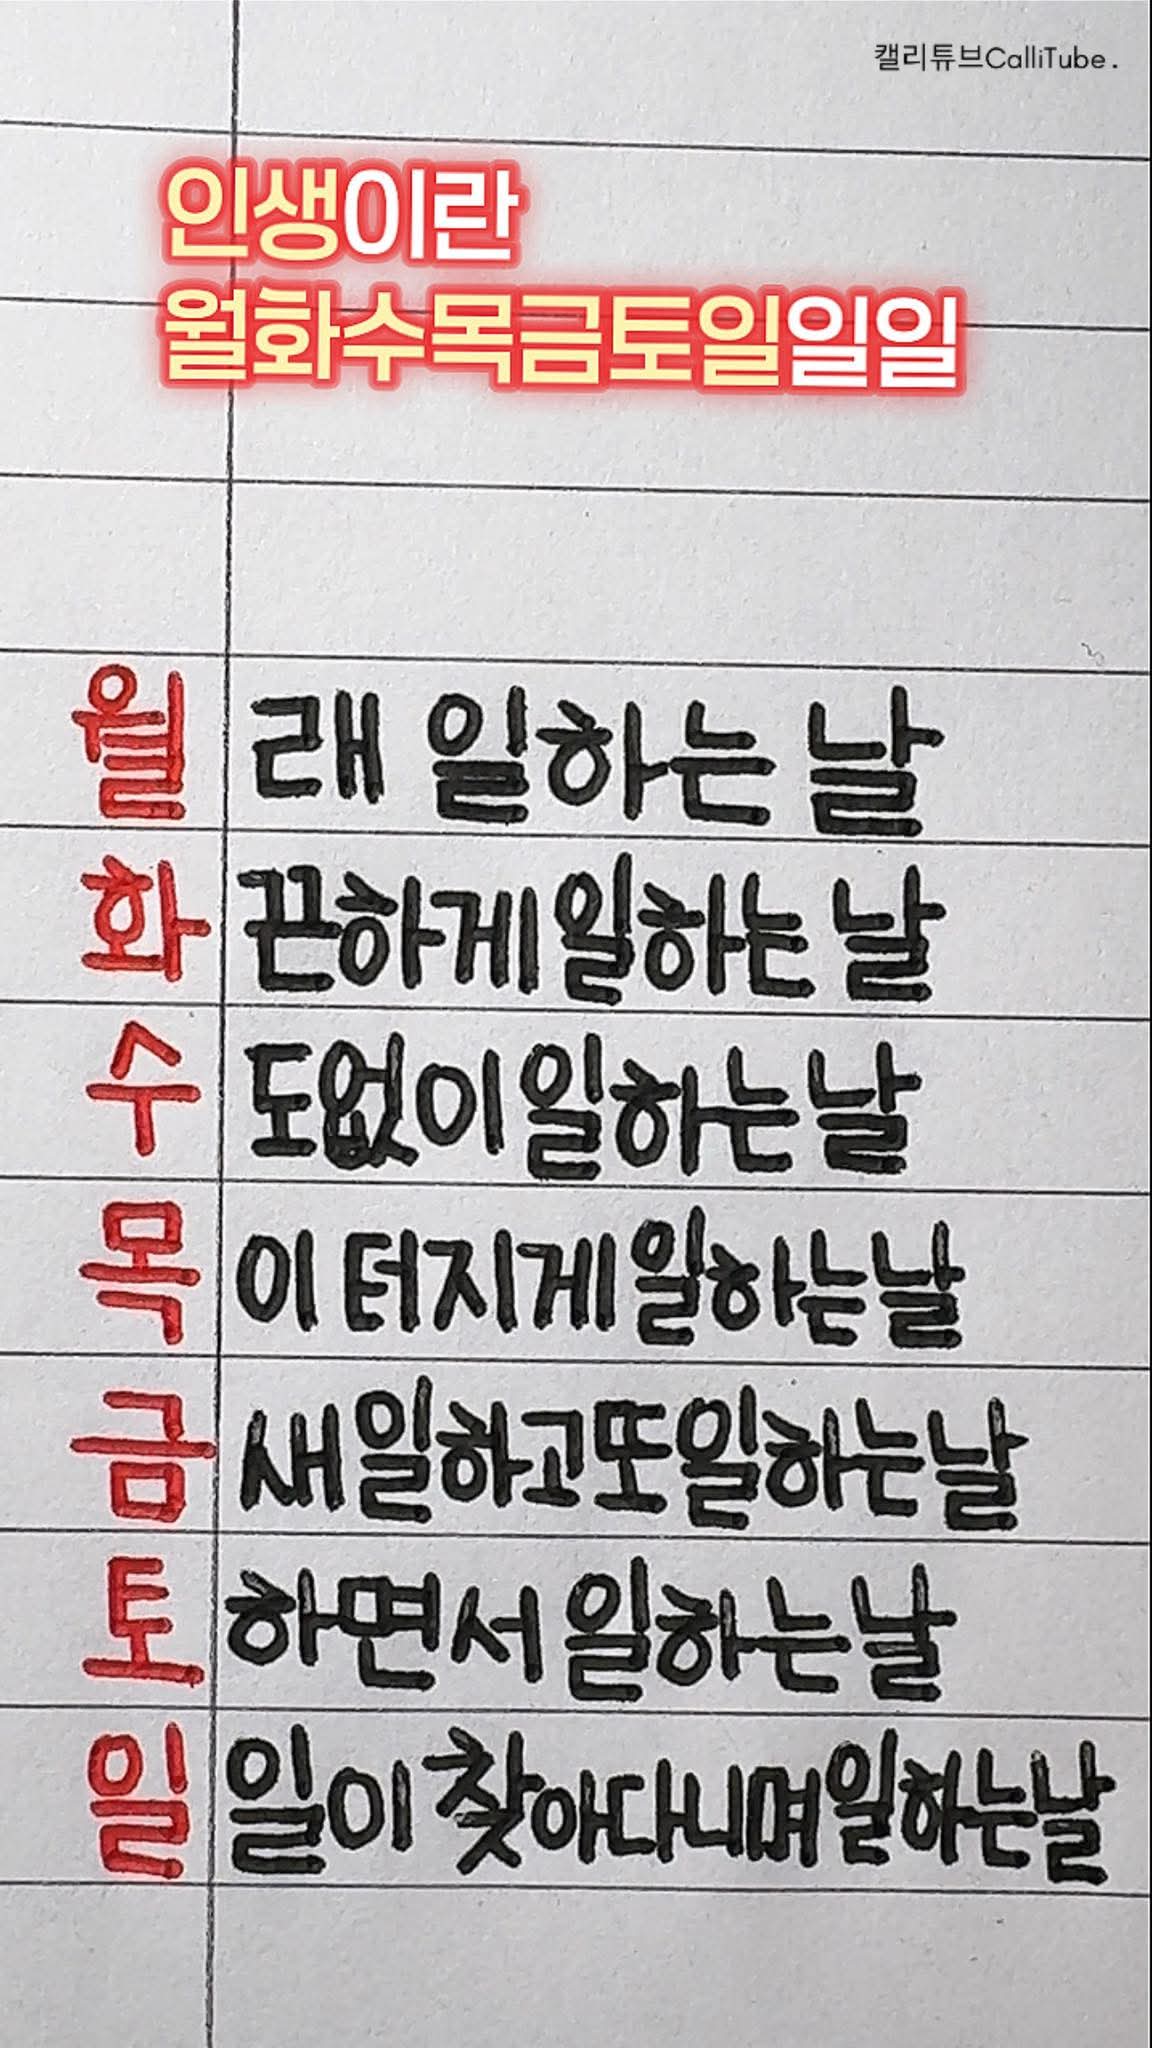 캘리튜브CalliTube.
인생이란
월화수목금토일일일
월 래 일하는 날
화 끈하게 일하는 날
수 도없이 일하는 날
목 이 터지게 일하는 날
금 새 일하고 또 일하는 날
토 하면서 일하는 날
일 일이 찾아다니며 일하는 날